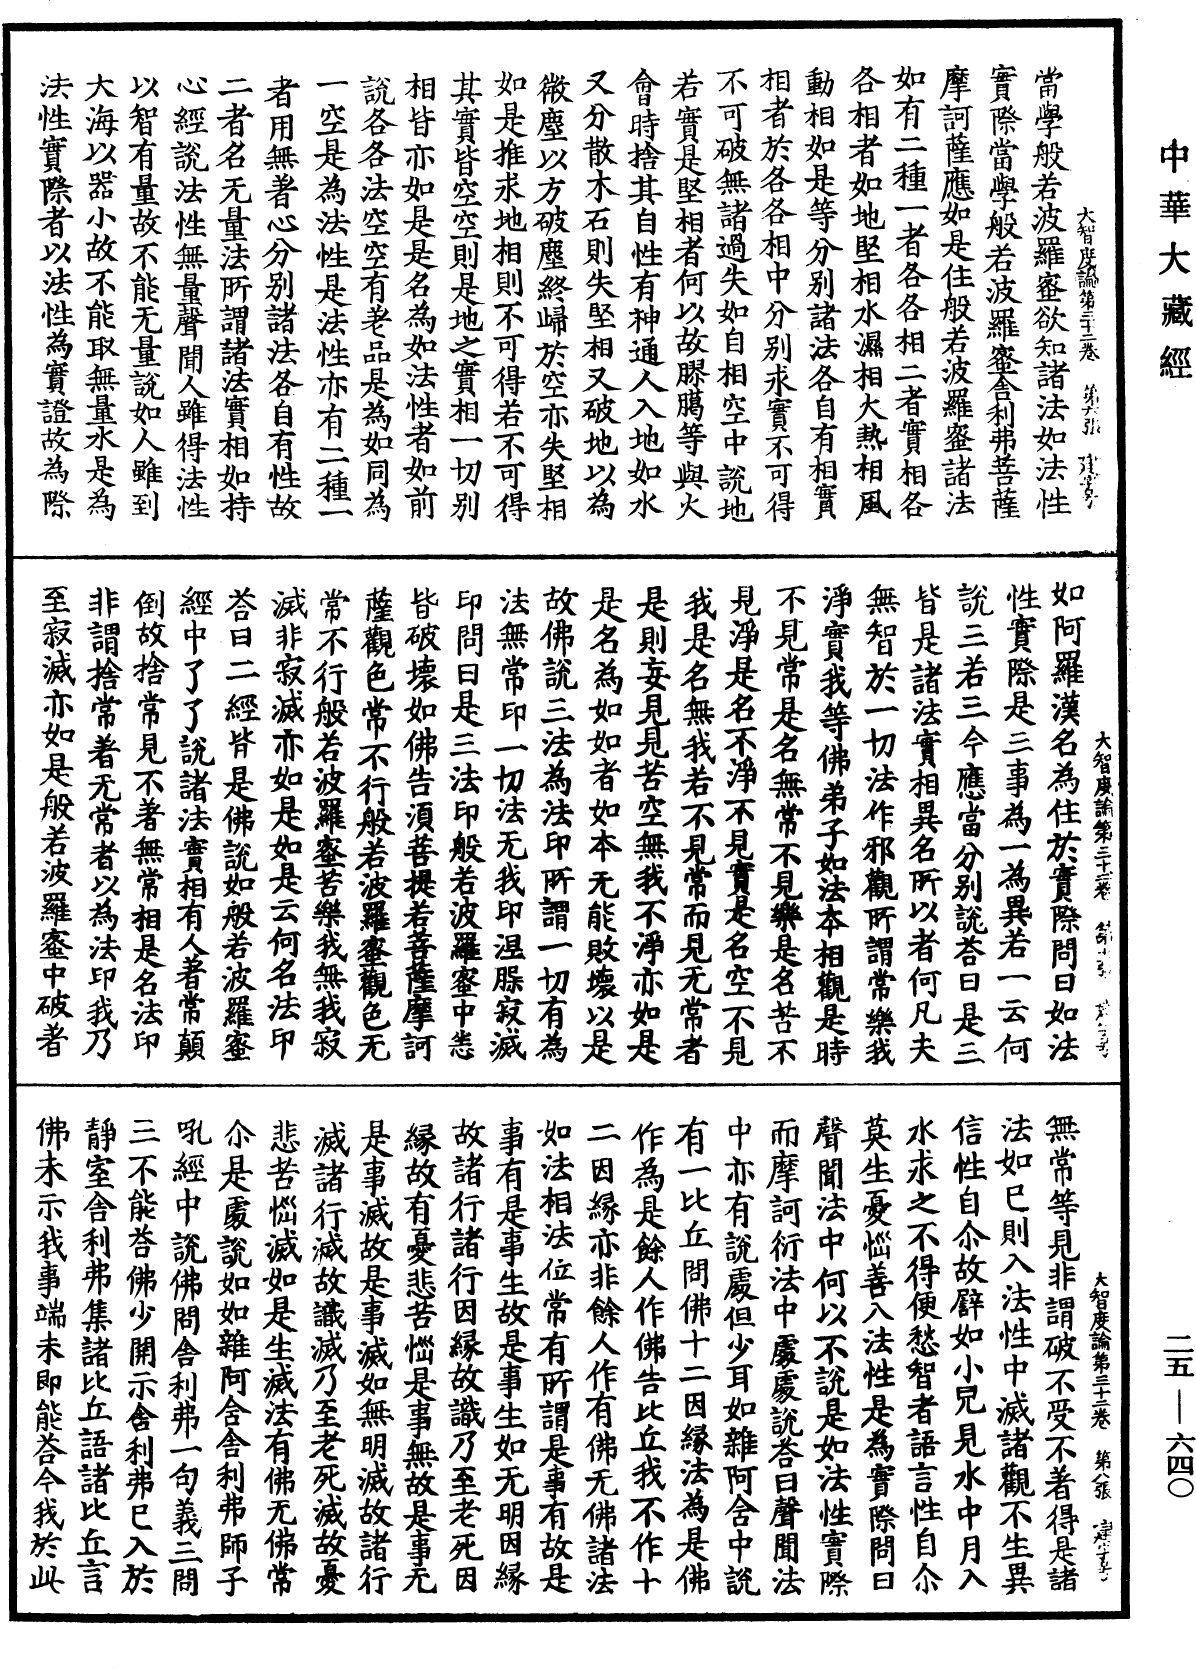 中華大藏經
大智度論第三十二卷　第六張　建
當學般若波羅蜜欲知諸法如法性
實際當學般若波羅蜜舍利弗菩薩
摩訶薩應如是住般若波羅蜜諸法
如有二種一者各各相二者實相各
各相者如地堅相水濕相火熱相風
動相如是等分別諸法各自有相實
相者於各各相中分別求實不可得
不可破無諸過失如自相空中說地
若實是堅相者何以故膠𦡶等與火
會時捨其自性有神通人入地如水
又分散木石則失堅相又破地以為
微塵以方破塵終歸於空亦失堅相
如是推求地相則不可得若不可得
其實皆空空則是地之實相一切別
相皆亦如是是名為如法性者如前
說各各法空空有差品是為如同為
一空是為法性是法性亦有二種一
者用無著心分別諸法各自有性故
二者名无量法所謂諸法實相如持
心經說法性無量聲聞人雖得法性
以智有量故不能无量說如人雖到
大海以器小故不能取無量水是為
法性實際者以法性為實證故為際
大智度論第三十二卷
如阿羅漢名為住於實際問曰如法
性實際是三事為一為異若一云何
說三若三今應當分別說荅曰是三
皆是諸法實相異名所以者何凡夫
無智於一切法作邪觀所謂常樂我
淨實我等佛弟子如法本相觀是時
不見常是名無常不見樂是名苦不
見淨是名不淨不見實是名空不見
我是名無我若不見常而見无常者
是則妄見見苦空無我不淨亦如是
是名為如如者如本无能敗壞以是
故佛說三法為法印所謂一切有為
法無常印一切法无我印涅槃寂滅
印問曰是三法印般若波羅蜜中悉
皆破壞如佛告須菩提若菩薩摩訶
薩觀色常不行般若波羅蜜觀色无
常不行般若波羅蜜苦樂我無我寂
滅非寂滅亦如是如是云何名法印
荅曰二經皆是佛說如般若波羅蜜
經中了了說諸法實相有人著常顛
倒故捨常見不著無常相是名法印
非謂捨常著无常者以為法印我乃
至寂滅亦如是般若波羅蜜中破著
大智度論第三十二卷　第八張　建
無常等見非謂破不受不著得是諸
法如已則入法性中滅諸觀不生異
信性自尒故譬如小兒見水中月入
水求之不得便愁智者語言性自尒
莫生憂惱善入法性是為實際問曰
聲聞法中何以不說是如法性實際
而摩訶衍法中處處說荅曰聲聞法
中亦有說處但少耳如雜阿含中說
有一比丘問佛十二因緣法為是佛
作為是餘人作佛告比丘我不作十
二因緣亦非餘人作有佛无佛諸法
如法相法位常有所謂是事有故是
事有是事生故是事生如无明因緣
故諸行諸行因緣故識乃至老死因
緣故有憂悲苦惱是事無故是事无
是事滅故是事滅如無明滅故諸行
滅諸行滅故識滅乃至老死滅故憂
悲苦惱滅如是生滅法有佛无佛常
尒是處說如如雜阿含舍利弗師子
吼經中說佛問舍利弗一句義三問
三不能荅佛少開示舍利弗已入於
靜室舍利弗集諸比丘語諸比丘言
佛未示我事端未即能荅今我於此
二五—六四〇